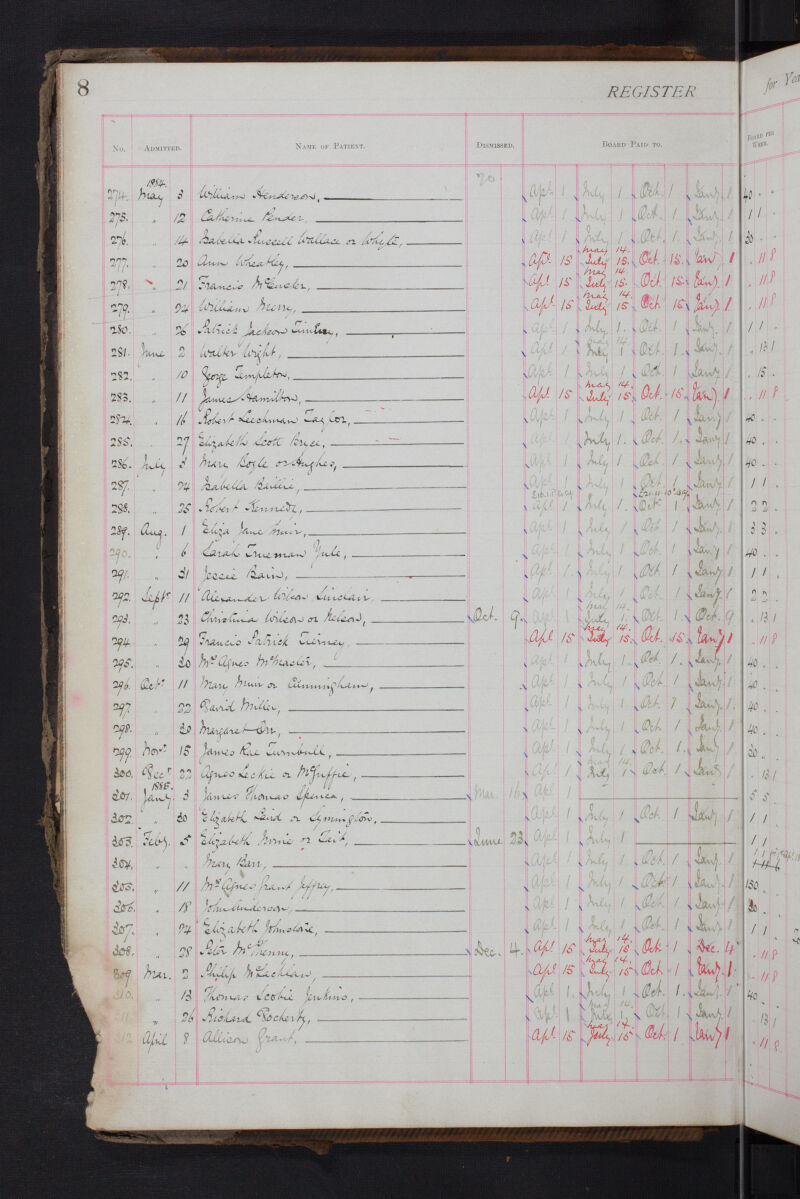 8
REGISTER
for Yea
No. Admitted. Name of Patient. Dismissed. Board Paid to. Board per Week.
1884.
274. May 3 William Henderson, Apl 1 July 1 Oct. 1 Jany. 1 40 . .
275. " 12 Catherine Pender, Apl 1 July 1 Oct. 1 Jany. 1 11 .
276. " 14 Isabella Russell Wallace or Whyte, Apl 1 July 1 Oct. 1 Jany. 1 30 . .
May 14.
277. " 20 Ann Wheatley, Apl. 15 July 15. Oct. 15. Jany 1 . 11 8
May 14.
278. " 21 Francis Apl 15 July 15. Oct. 15. Jany. 1 . 11 8
May 14.
279. " 24 William Merry, Apl. 15 July 15 Oct. 15 Jany. 1 . 11 8
280. " 26 Patrick Jackson Apl 1 July 1. Oct. 1 Jany. 1 11 .
May 14.
281. June 2 Walter Wight, Apl 1 July 1 Oct. 1. Jany. 1 . 13 1
282. " 10 George Templeton, Apl 1 July 1 Oct. Jany 1 . 15 .
May 14.
283. " 11 James Hamilton, Apl. 15 July 15. Oct. 15. Jany 1 . 11 8
284. " 16 Robert Leechman Taylor, Apl 1 July 1 Oct. 1 Jany 1 40 . .
285. " 27 Elizabeth Scott Bryce, Apl 1 July 1. Oct. 1. Jany 1 40 . .
286. July 3 Mary Boyle or Hughes, Apl 1 July 1 Oct. 1 Jany. 1 40 . .
287. " 24 Isabella Baillie, Apl 1 July 1 Oct. 1 Jany. 1 11 .
288. " 25 Robert Kennedy, Apl 1 July 1. Oct. 1 Jany 1 22 .
289. Aug. 1 Eliza Jane Muir, Apl 1 July 1 Oct 1 Jany. 1 33 .
290. " 6 Sarah Trueman Yule, Apl 1 July 1 Oct. 1 Jany 1 40 . .
291. " 31 Jessie Bain, Apl 1 July 1 Oct. 1 Jany 1 11 .
292. Septr 11 Alexander Wilson Sinclair, Apl July 1 Oct. 1 Jany. 1 22 .
May 14.
293. " 23 Christina Wilson or Nelson, Oct. 9. Apl 1 July Oct 1. Oct. 9 . 13 1
May 14.
294. " 29 Francis Patrick Tierney, Apl 15 July 15. Oct. 15. Jany 1 . 11 8
295. " 30 Mrs Agnes Apl 1 July 1. Oct. 1. Jany. 1 40 . .
296. Octr 11 Mary Muir or Cunningham, Apl 1 July 1 Oct. 1 Jany. 1 40 . .
297. " 22 David Miller, Apl July 1 Oct. 1 Jany. 1. 40 . .
298. " 30 Margaret Orr, Apl 1 July 1 Oct. 1 Jany. 1 40 . .
299. Novr 15 James Rae Turnbull, Apl 1 July 1 Oct. 1. Jany 30 . .
May 14.
300. Decr 22 Agnes Leckie or McGuffie, Apl 1 July 1 Oct. 1 Jany 1 . 13 1
1885.
301. Jany. 3 James Thomas Spence, Mar. 16 Apl 1 55 .
302. " 30 Elizabeth Laird or Symington, Apl 1 July 1 Oct. 1 Jany 1 11
303. Feby. 5 Elizabeth Imrie or Tait, June 23 Apl 1 July 1 11
304. " " Mary Barr, Apl 1 July 1 Oct. Jany. 1
305. " 11 Mrs Agnes Grant Jeffrey, Apl 1 July 1 Oct. 1 Jany. 1 150 . .
306. " 18 John Anderson, Apl 1 July 1 Oct. 1 Jany 1 30 . .
307. " 24 Elizabeth Johnstone, Apl 1 July 1 Oct. 1 Jany 1 11
May 14.
308. " 28 Peter Dec. 4. Apl 15 July 15 Oct. 1 Dec. 4 . 11 8
May 14.
309. Mar. 2 Philip McLachlan, Apl 15 July 15 Oct. 1 Jany. 1. . 11 8
310. " 13 Thomas Scobie Jenkins, Apl 1. July 1 Oct. 1. Jany. 1 40 . .
May 14.
311. " 26 Richard Docherty, Apl 1 July 1 Oct. 1 Jany. 1 . 13 1
May 14.
312. April 8 Allison Grant, Apl 15 July 15 Oct. 1 Jany 1 . 11 8